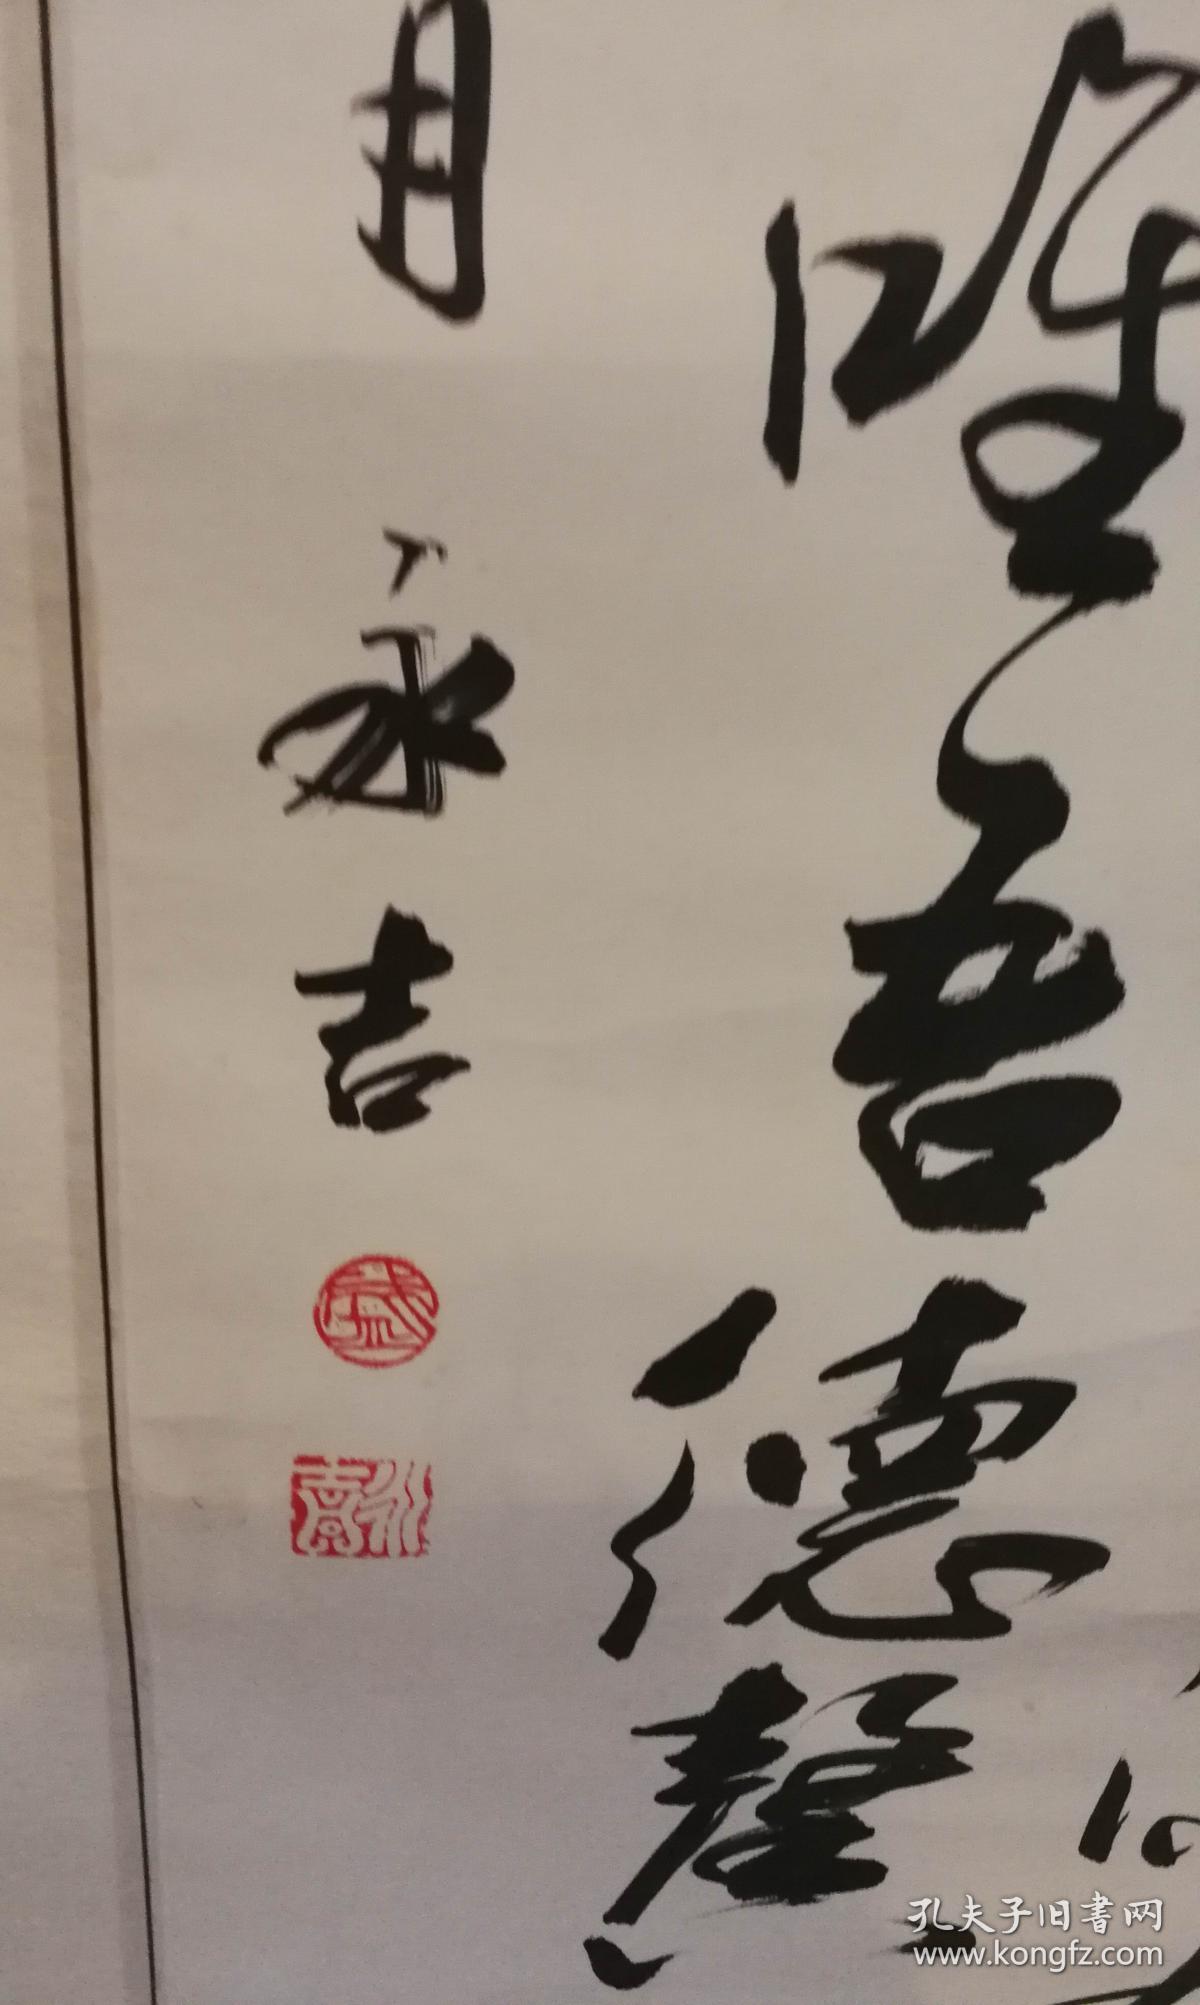 唯吾德馨
月永吉
孔夫子旧书网
www.kongfz.com